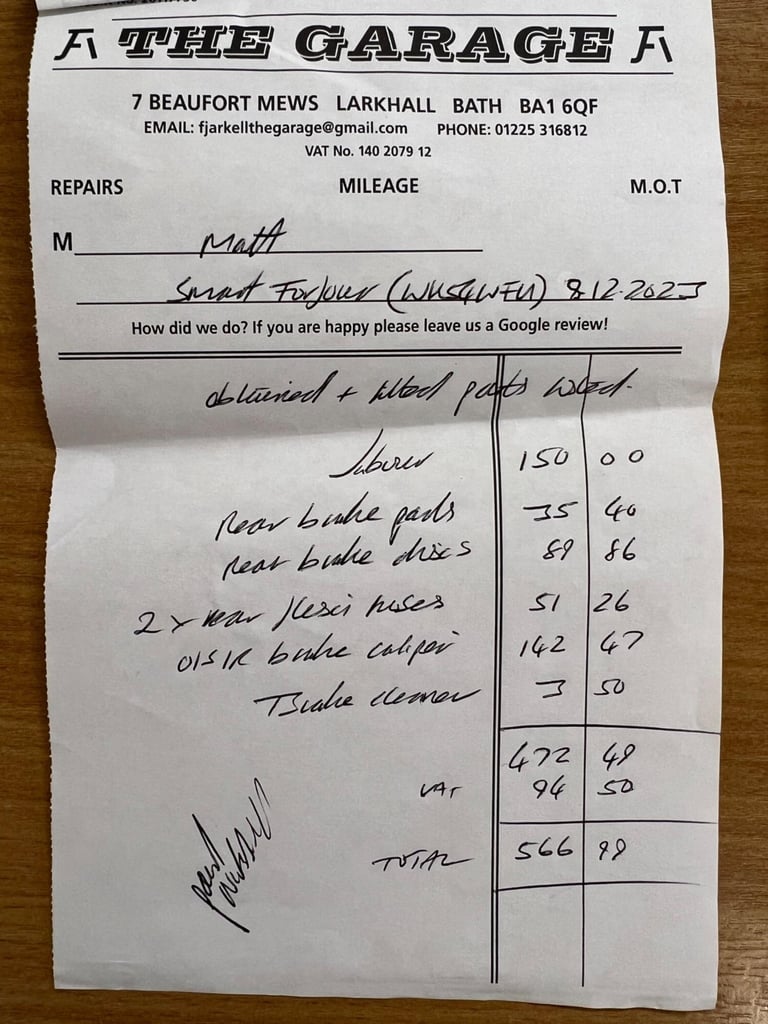 THE GARAGE
7 BEAUFORT MEWS LARKHALL BATH BA1 6QF
EMAIL: fjarkellthegarage@gmail.com PHONE: 01225 316812
VAT No. 140 2079 12
REPAIRS MILEAGE M.O.T
M Matt
Smart Forfour 8.12.2023
How did we do? If you are happy please leave us a Google review!
obtained + fitted parts listed.
Labour 150 00
Rear brake pads 35 40
Rear brake discs 89 86
2 x rear flexi hoses 51 26
O/S/R brake caliper 142 47
Brake cleaner 3 50
472 49
VAT 94 50
TOTAL 566 99
paid